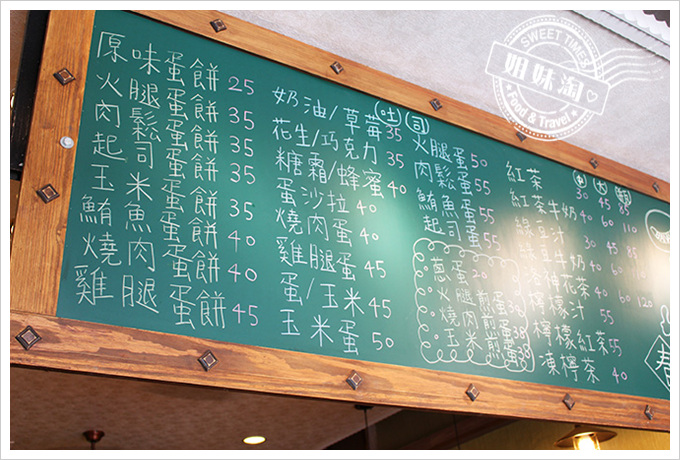 SWEET TIMES
姐妹淘
Food & Travel
原味蛋餅 25
火腿蛋餅 35
肉鬆蛋餅 35
起司蛋餅 35
玉米蛋餅 35
鮪魚蛋餅 40
燒肉蛋餅 40
雞腿蛋餅 45
(吐)(司)
奶油/草莓 35
花生/巧克力 35
糖霜/蜂蜜 40
蛋沙拉 40
燒肉蛋 40
雞腿蛋 45
蛋/玉米 45
玉米蛋 50
火腿蛋 50
肉鬆蛋 55
鮪魚蛋 55
起司蛋 55
蔥蛋 20
火腿煎蛋 30
燒肉煎蛋
玉米煎蛋
中 大
紅茶 30 45 85
紅茶牛奶 40 60 110
綠豆汁 30 45 85
綠豆牛奶 40 60 110
洛神花茶 40 60 120
檸檬汁 55
檸檬紅茶 55
凍檸茶 40
春